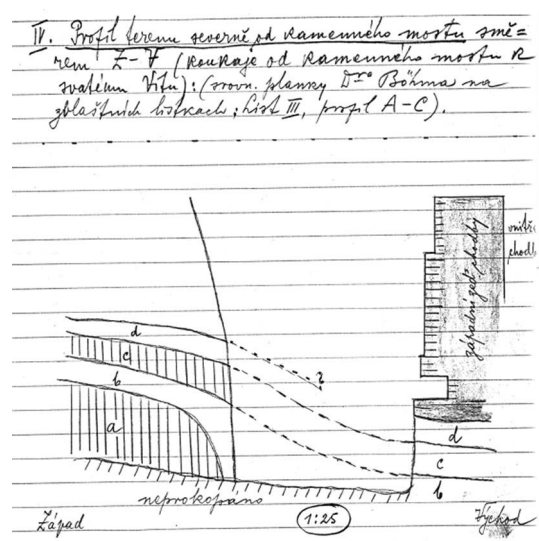 IV. Profil terenu severně od kamenného mostu smě=
rem Z-V (koukaje od kamenného mostu k
svatému Vítu): (srovn. planky Dra Böhma na
zvláštních lístkách; list III, profil A-C).
západní zeď chodby
vnitř.
chodb
d
?
c
b
a
d
c
b
neprokopáno
Západ
1:25
Východ